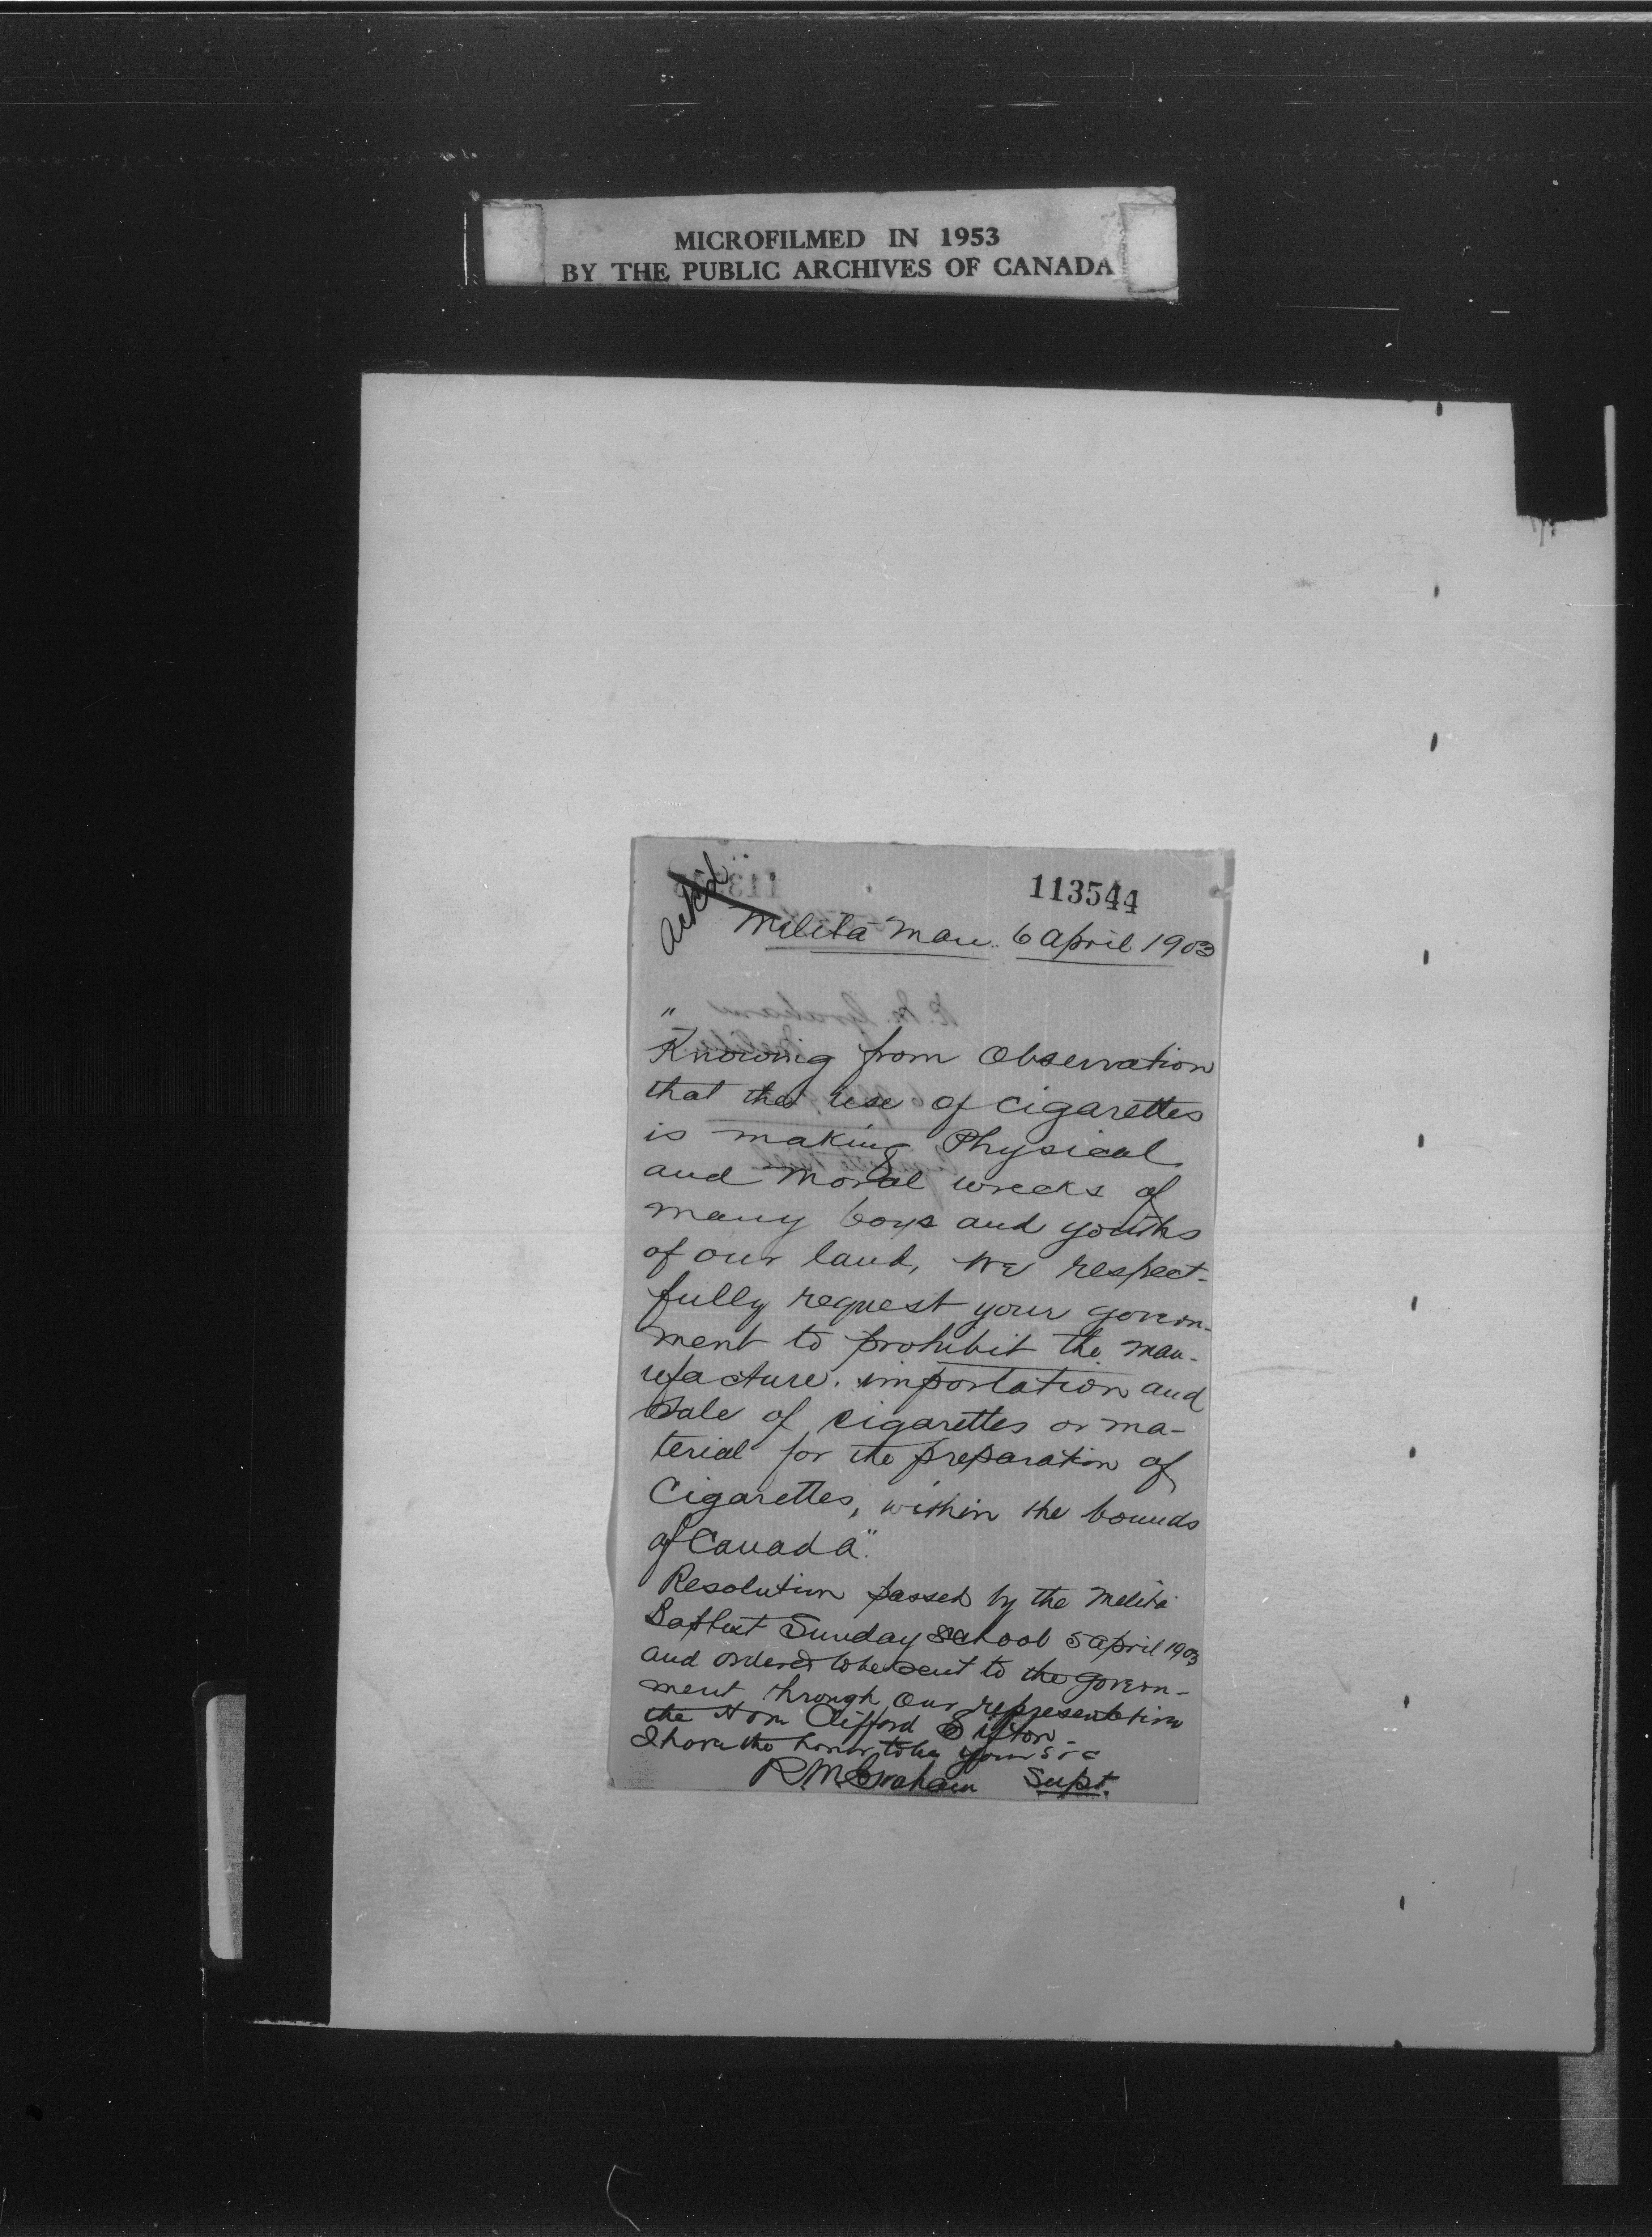 MICROFILMED IN 1953
BY THE PUBLIC ARCHIVES OF CANADA
113544
Ackd
Melita Man. 6 April 1903
"
Knowing from Observation
that the use of cigarettes
is making Physical
and Moral wrecks of
many boys and youths
of our land, We respect-
fully request your govern-
ment to prohibit the man-
ufacture. importation and
Sale of cigarettes or ma-
terial for the preparation of
Cigarettes, within the bounds
of Canada".
Resolution passed by the Melita
Baptist Sunday School 5 April 1903
and ordered to be sent to the govern-
ment through our representative
the Hon Clifford Sifton
I have the honor to be yours &c
R. M. Graham Supt.